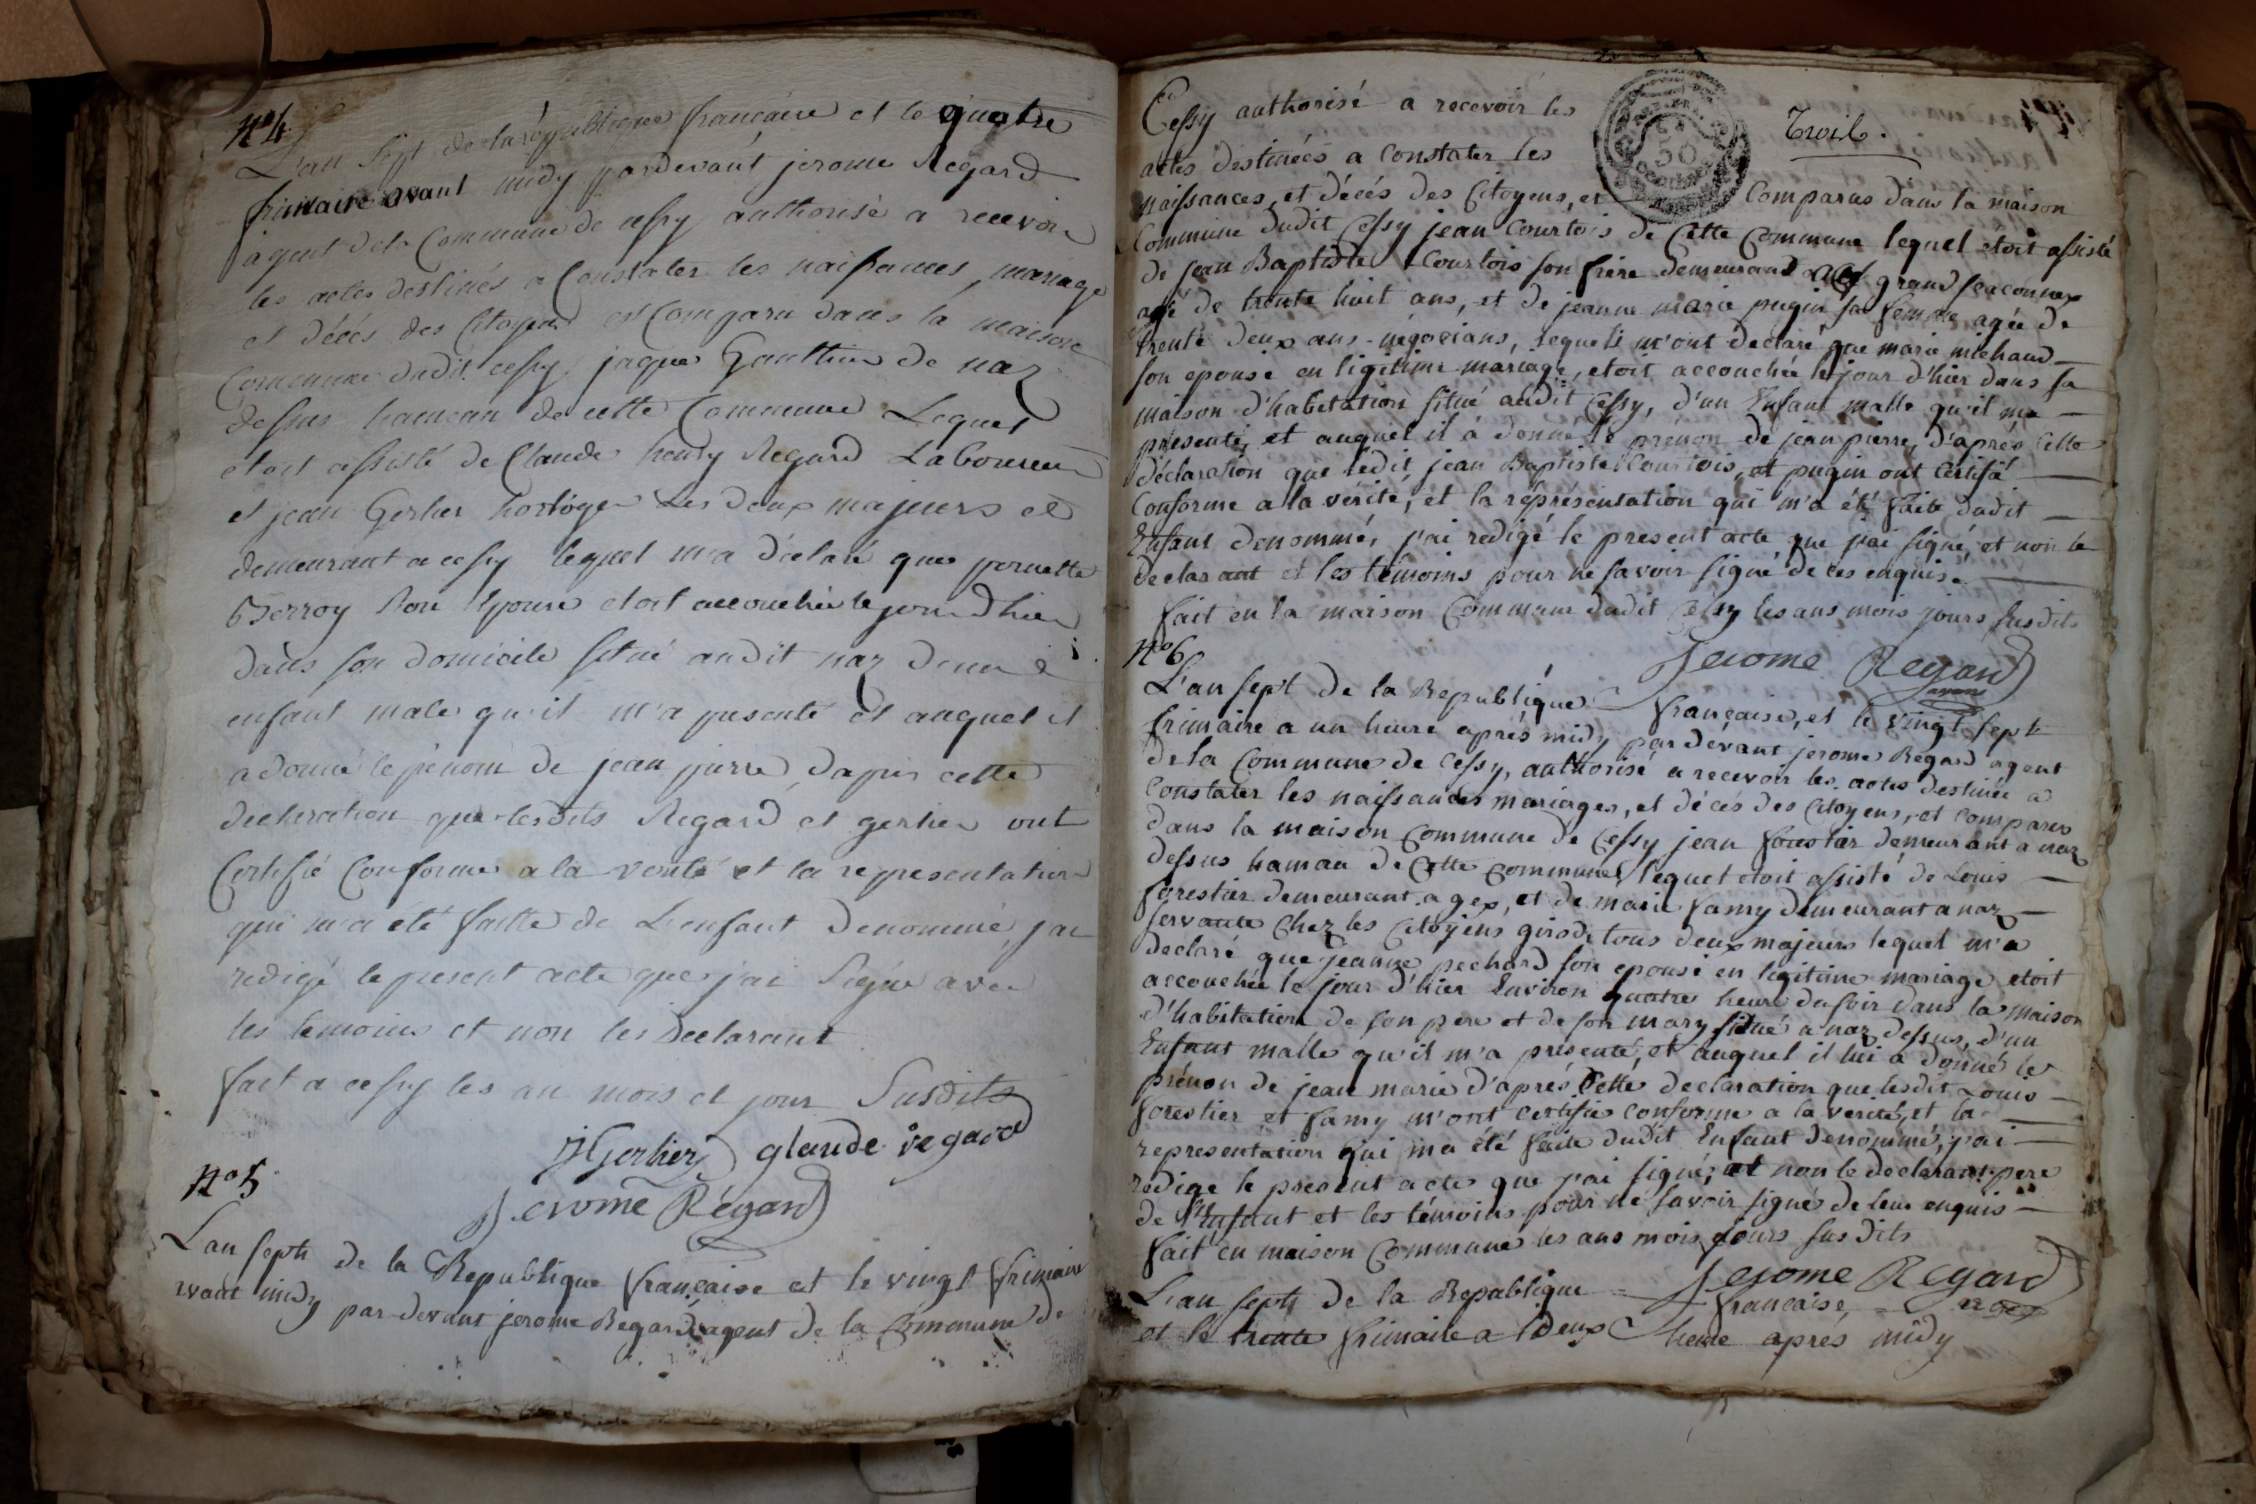 N° 4
L'an Sept de la republique francaise et le quatre
frimaire avant midy pardevant jerome Regard
agent dela Commune de cessy authorisé a recevoir
les actes destinés a Constater les naissances, mariage
et décés des Citoyens est Comparu dans la maison
Commune dudit cessy jaques Gauthier de naz
dessus hameau de cette Commune Lequel
etoit assisté de Claude henry Regard Laboureur
et jean Gerlier horloger Les deux majeurs et
demeurant a cessy lequel m'a déclaré que pernette
son Epouse etoit accouchée le jour d'hier
dans son domicile situé audit naz d'un
enfant male qu'il m'a presenté et auquel il
a donné le prénom de jean pierre, dapres cette
declaration que lesdits Regard et gerlier ont
Certifié Conforme a la verité et la representation
qui m'a été faitte de L'enfant denommé, jai
redigé le present acte que j'ai Signé avec
les temoins et non les Declarant
fait a cessy les an mois et jour Susdits
JGerlier glaude regard
Jerome Régard
N° 5
L'an septh de la Republique francaise et le vingt frimaire
avant midy par devant jerome Regard agent de la Commune de
Cessy authorisé a recevoir les
Troil.
actes destinées a constater les
naissances, et décés des Citoyens, et Comparus dans la maison
Commune dudit Cessy jean Courtois de Cette Commune lequel étoit assisté
de jean Baptiste Courtois son frère demeurand grand seaconnex
agé de trente huit ans, et de jeanne marie pugin sa femme agée de
trente deux ans négocians, lequels m'ont déclaré que marie michaud
son epouse en ligitime mariage, etoit accouchée le jour d'hier dans sa
maison d'habitation situé audit Cessy, d'un Enfant malle qu'il ma
presenté, et auquel il à donné le prénon de jean pierre, d'après Cette
déclaration que ledit jean Baptiste Courtois, et pugin ont Certifié
Conforme a la vérité, et la réprésentation qui m'a été faite dudit
Enfant denommé, j'ai redigé le present acte que j'ai signé, et non le
declarant et les temoins pour ne savoir signé de ces enquis.
fait en la maison Commune dudit Cessy les ans mois jours susdits
Jerome Regard
N° 6
L'an sept de la Republique francaise, et le vingt sept
frimaire a un heure aprés midy par dévant jerome Regard agent
de la Commune de Cessy, authorisé a recevoir les actes destinée a
Constater les naissances mariages, et décés des citoyens, et comparus
dans la maison commune de Cessy jean forestier demeurant a naz
dessus hamau de Cette commune lequel etoit assisté de Louis
forestier demeurant a gex, et de marie famy demeurant a naz
servante chez les citoyens girod tous deux majeurs lequel m'a
declaré que jeanne pechard son epouse en ligitime mariage etoit
accouchée le jour d'hier Environ quatre heure du soir dans la maison
d'habitation de son pere et de son mary situé a naz dessus, d'un
Enfant malle qu'il m'a présenté, et auquel il lui a donné le
prénon de jean marie d'aprés Cette declaration que lesdit Louis
forestier et famy m'ont certifié conforme a la verité, et la
representation qui ma été faite dudit Enfant denommé, j'ai
redige le present acte que j'ai signé, et non le declarant pere
de l'Enfant et les témoins pour ne savoir signés de leur enquis
fait en maison Commune les ans mois jours susdits
Jerome Regard
L'an septh de la Republique francaise,
et le trente frimaire a deux heure aprés midy